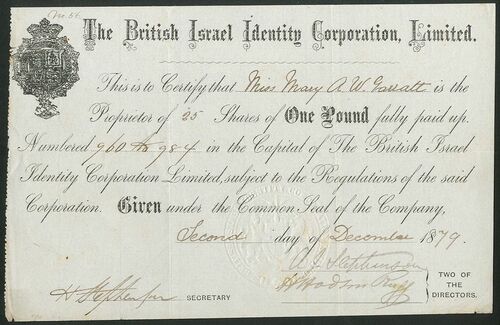 No. 56
The British Israel Identity Corporation, Limited.
This is to Certify that Miss Mary A. W. Garratt is the
Proprietor of 25 Shares of One Pound fully paid up.
Numbered 960 to 984 in the Capital of The British Israel
Identity Corporation Limited, subject to the Regulations of the said
Corporation. Given under the Common Seal of the Company,
Second day of December 1879.
SECRETARY
TWO OF
THE
DIRECTORS.